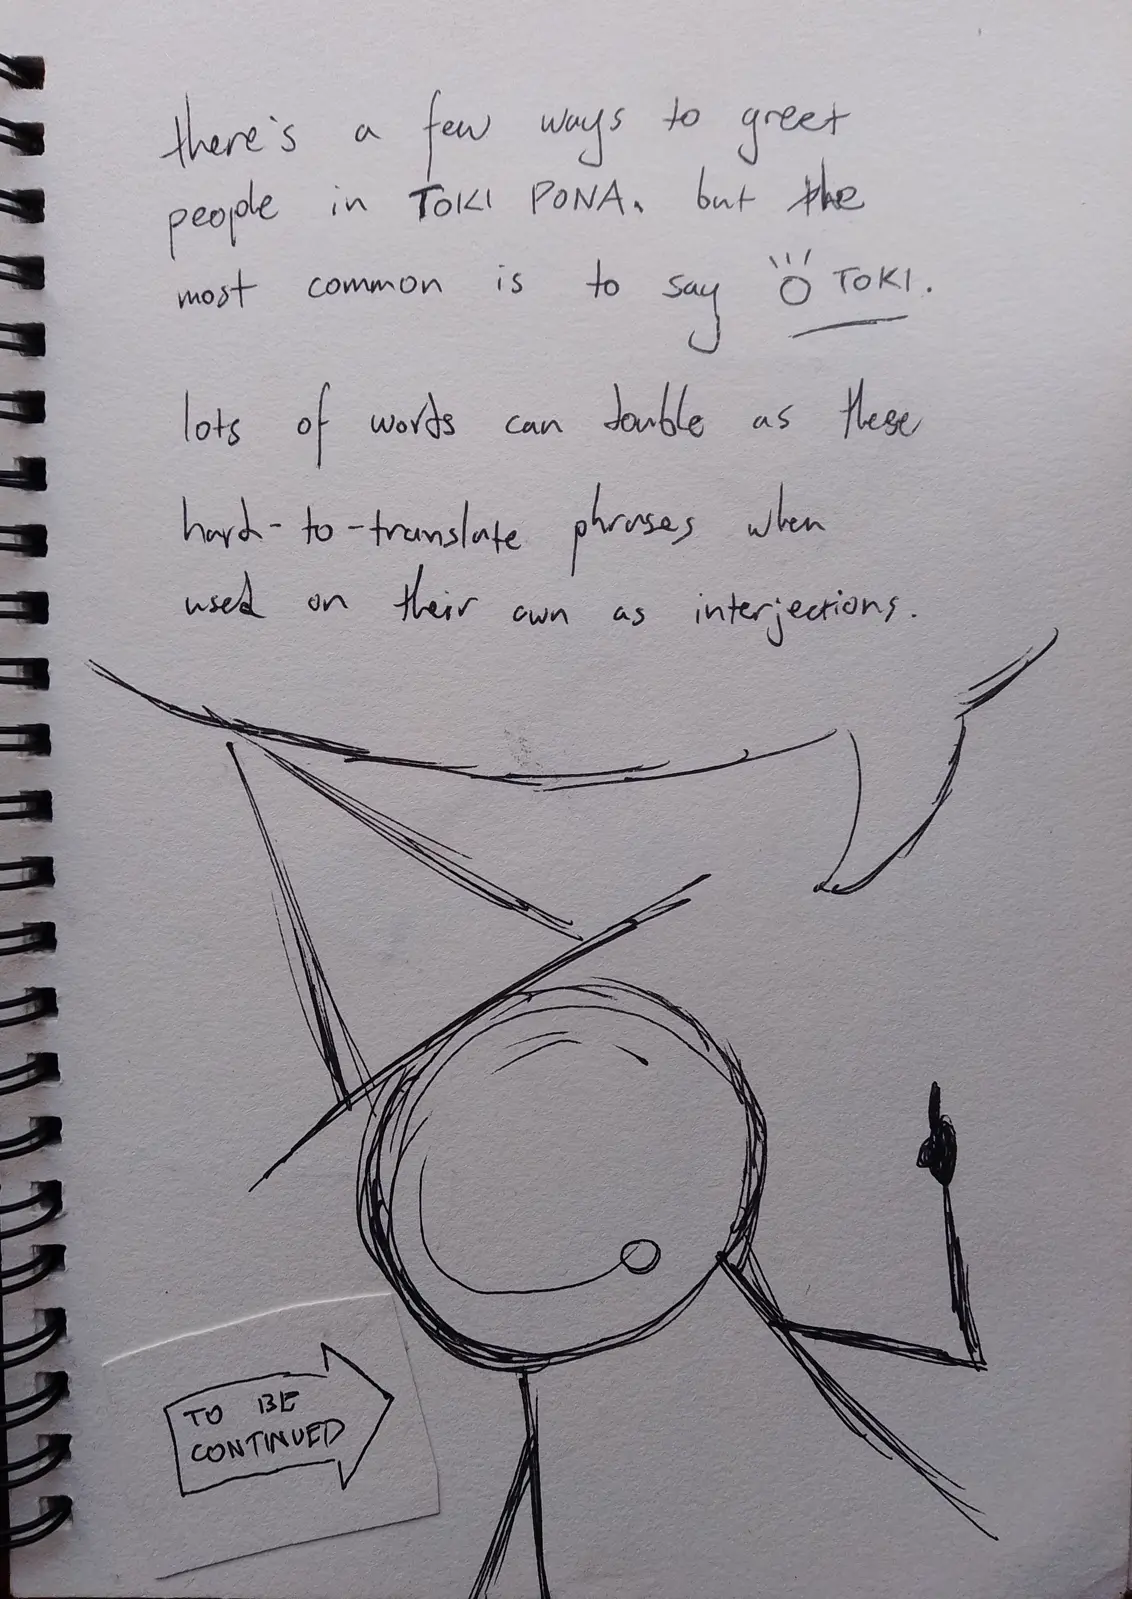 there's a few ways to greet
people in TOKI PONA. but the
most common is to say TOKI.
lots of words can double as these
hard-to-translate phrases when
used on their own as interjections.
TO BE
CONTINUED